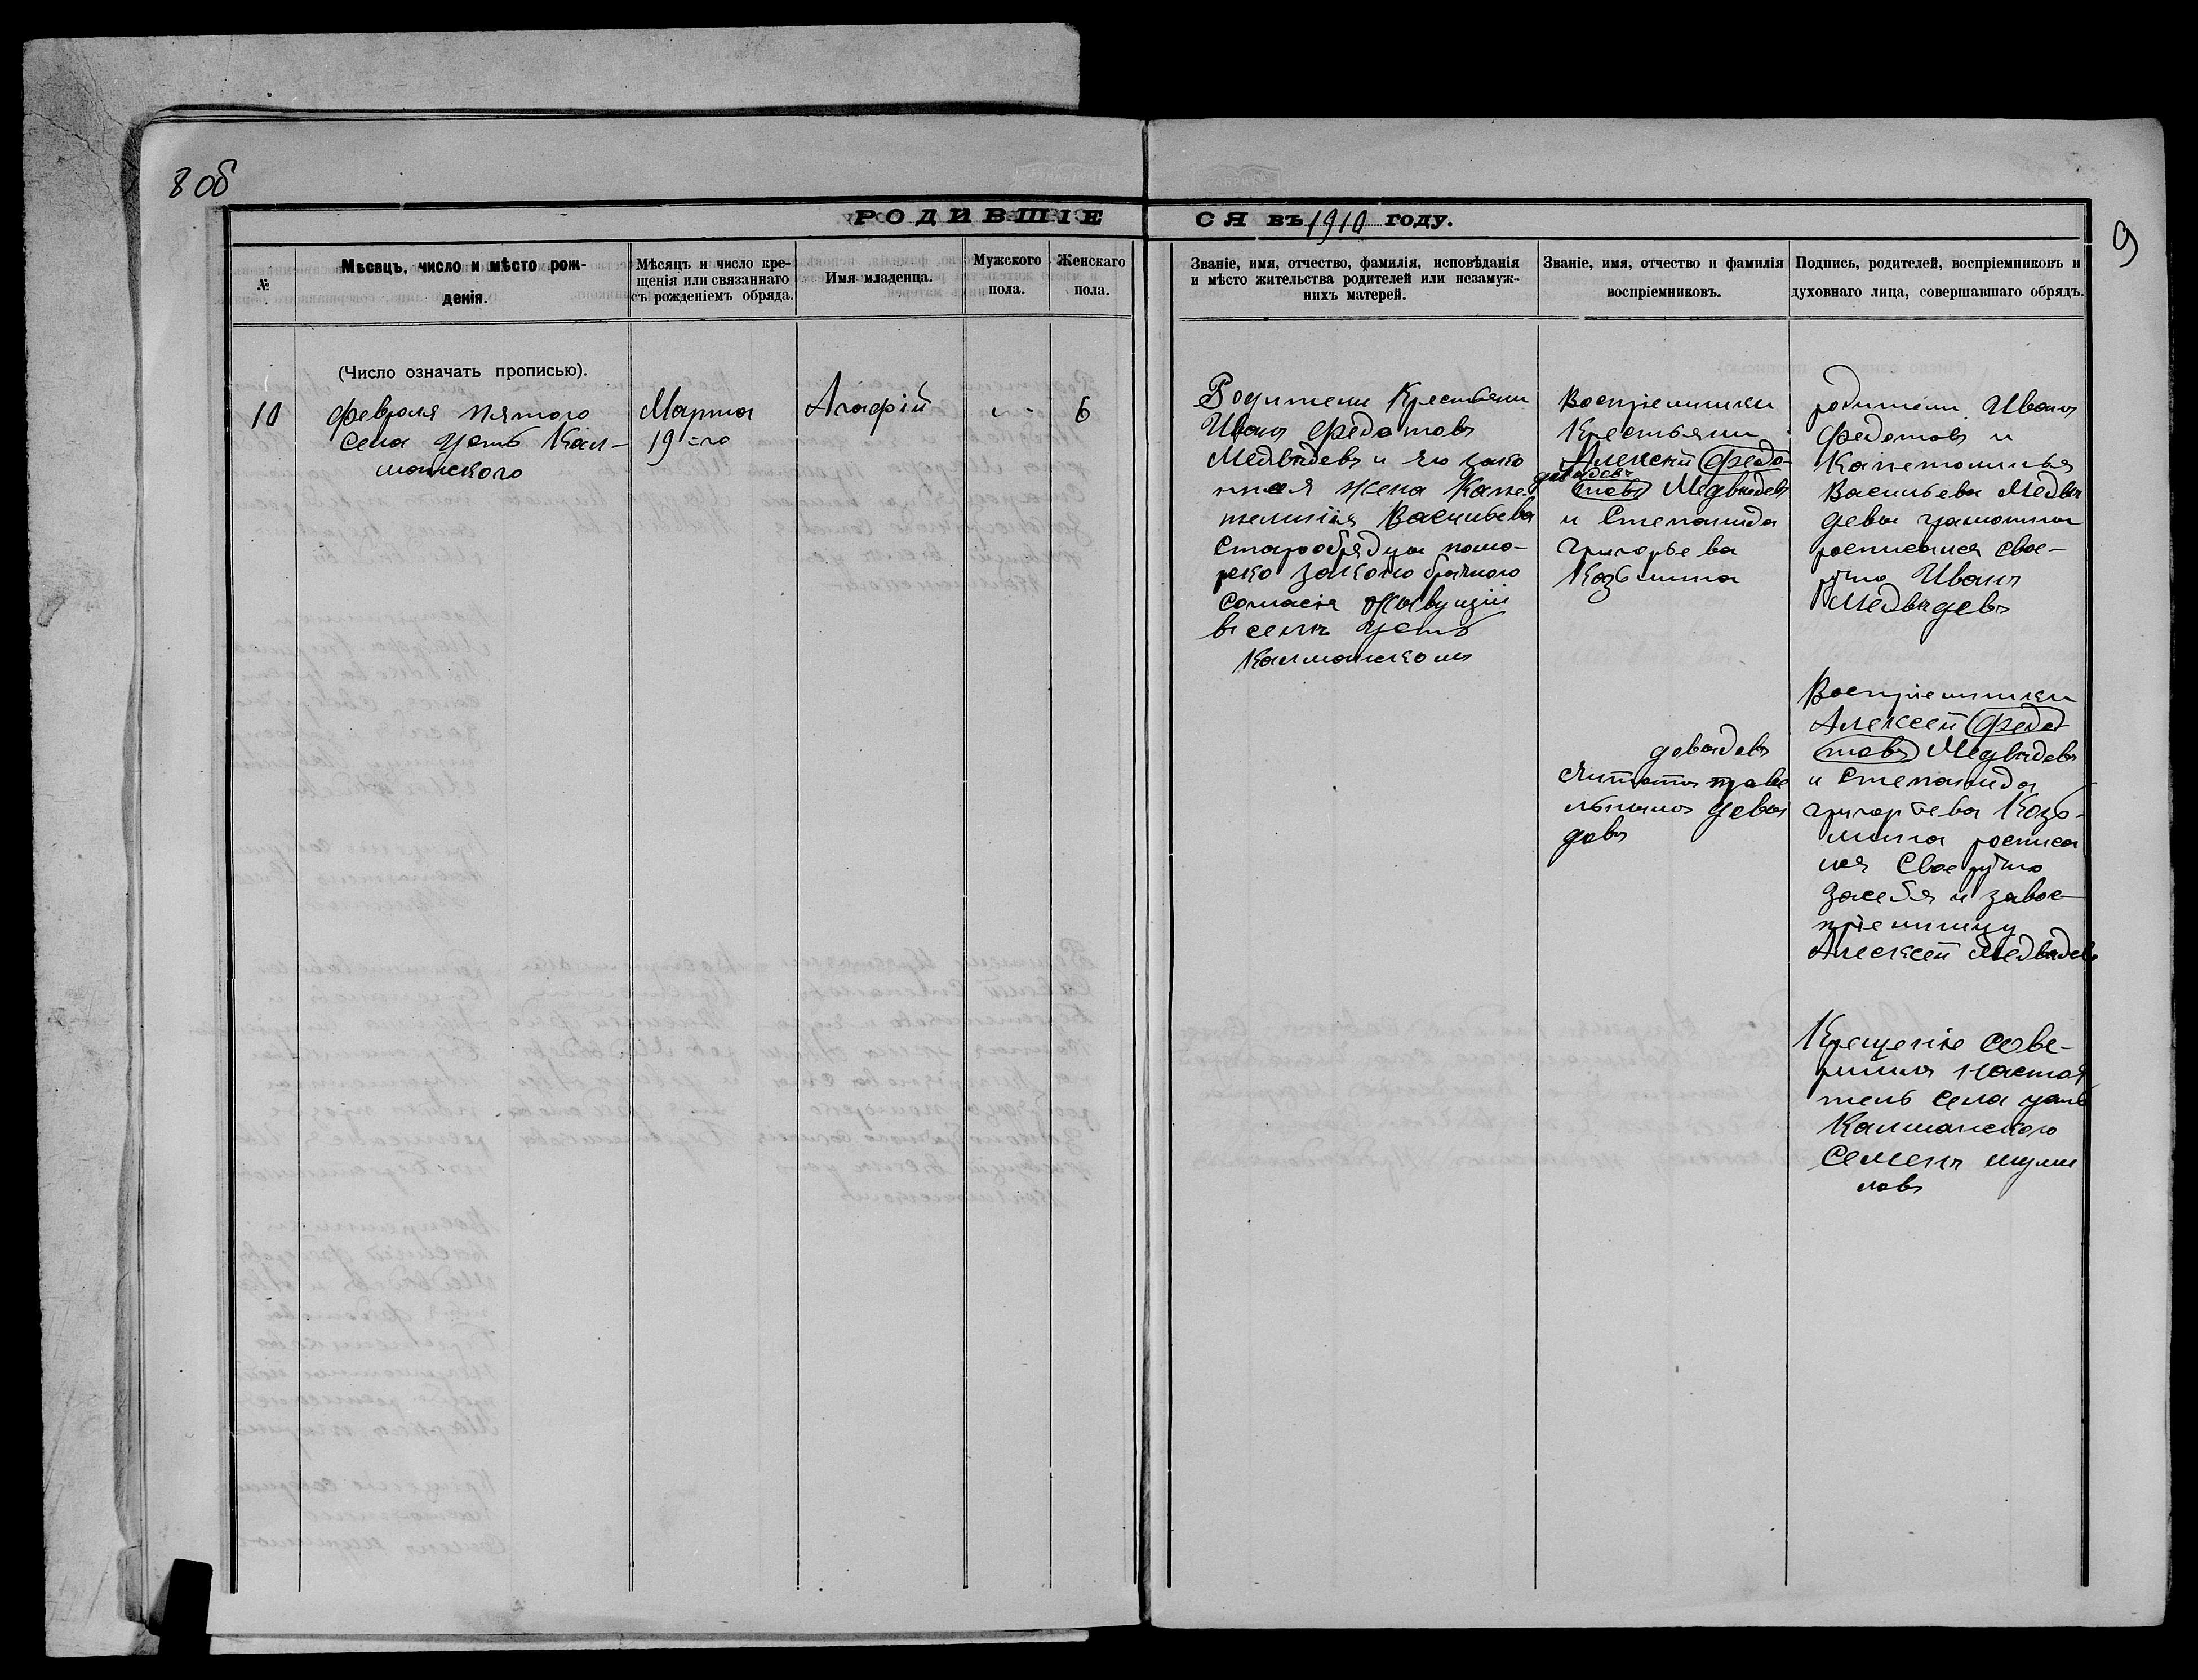 8 об
9
РОДИВШІЕ
СЯ въ 1910 году.
№
Мѣсяцъ, число и мѣсто рож-
денія.
Мѣсяцъ и число кре-
щенія или связаннаго
съ рожденіемъ обряда.
Имя младенца.
Мужского
пола.
Женскаго
пола.
Званіе, имя, отчество, фамилія, исповѣданія
и мѣсто жительства родителей или незамуж-
нихъ матерей.
Званіе, имя, отчество и фамилія
воспріемниковъ.
Подпись, родителей, воспріемниковъ и
духовнаго лица, совершавшаго обрядъ.
(Число означать прописью).
10
февраля пятого
села усть Кал-
манского
Марта
19 го
Агафій
6
Родители Крестьяни
Иванъ Федотовъ
Медвѣдевъ и его зако
нная жена Капе
телинія Васильева
Старообрядцы помо-
рско законо брачного
согласія живущіи
в селѣ усть
Калманскомъ
Воспріемники
Крестьяни
Алексей Федо-
давыдовъ
товъ Медвѣдевъ
и Степанида
григорьева
Козьмина
довыдовъ
Читать праве
льнымъ довы
довъ
родители Иванъ
Федотовъ и
Капетолинья
Васильева Медвѣ
девы грамотны
росписался свое-
ручно Иванъ
Медвѣдевъ
Воспріемники
Алексей Федо
товъ Медвѣдевъ
и Степанида
григорьева Козь-
мина росписа
лся Своеручно
засебя и завос-
пріемницу
Алексей Медвѣдевъ
Крещеніе сове-
ршилъ настоя
тель села усть
Калманского
Семенъ шуми
ловъ